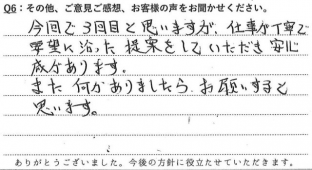 Q6：その他、ご意見ご感想、お客様の声をお聞かせください。
今回で3回目と思いますが、仕事が丁寧で
希望に沿った提案をしていただき安心
感があります。
また何かありましたら、お願いすると
思います。
ありがとうございました。今後の方針に役立たせていただきます。